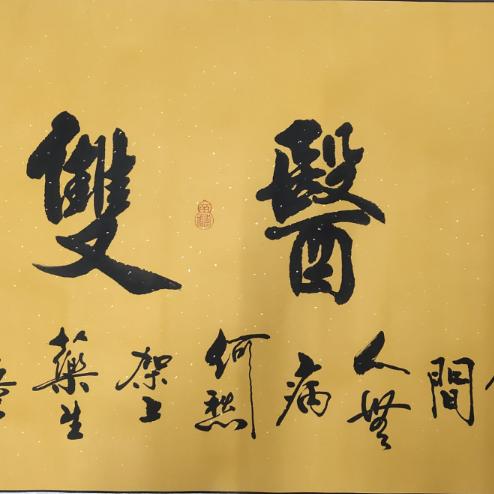 醫雙
間人無病何愁架上藥生